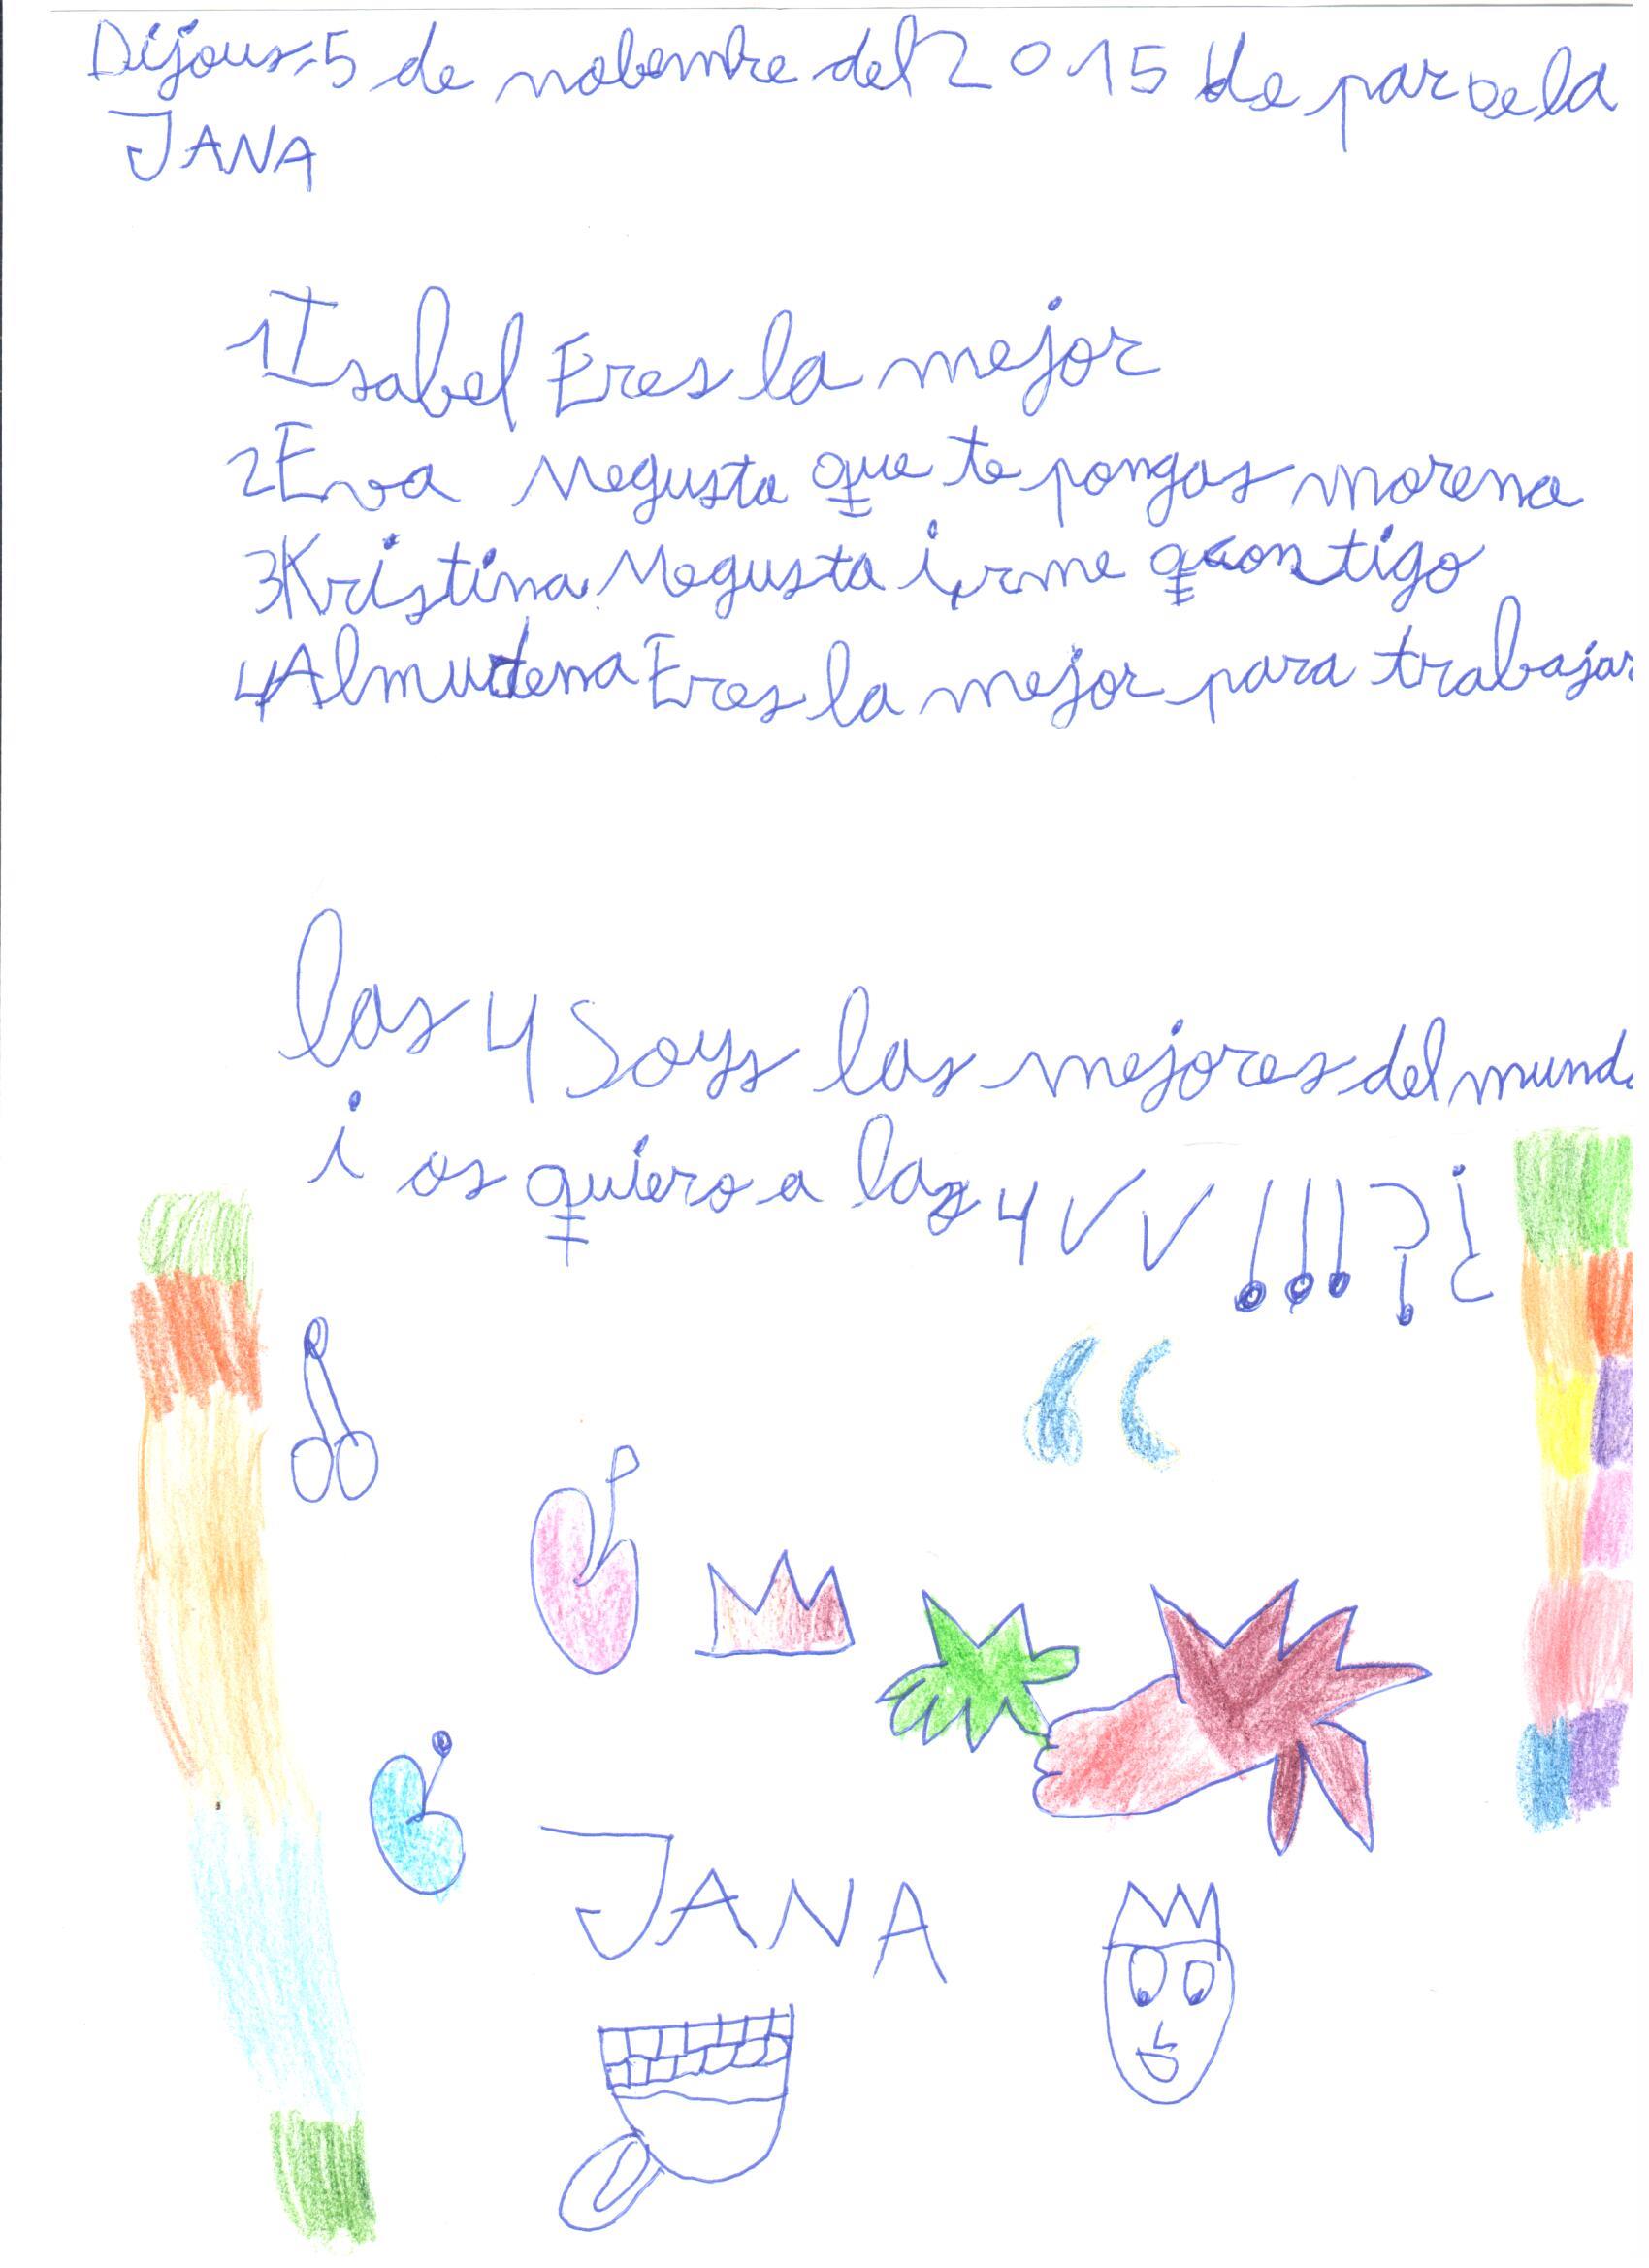 Dijous,5 de nobembre del 2015 de par de la
JANA
1 Isabel Eres la mejor
2 Eva Megusta que te pongas morena
3 Kristina Megusta irme quontigo
4 Almudena Eres la mejor para trabajar
las 4 Soys las mejores del mundo
i os quiero a las 4 √√!!!?¿
JANA